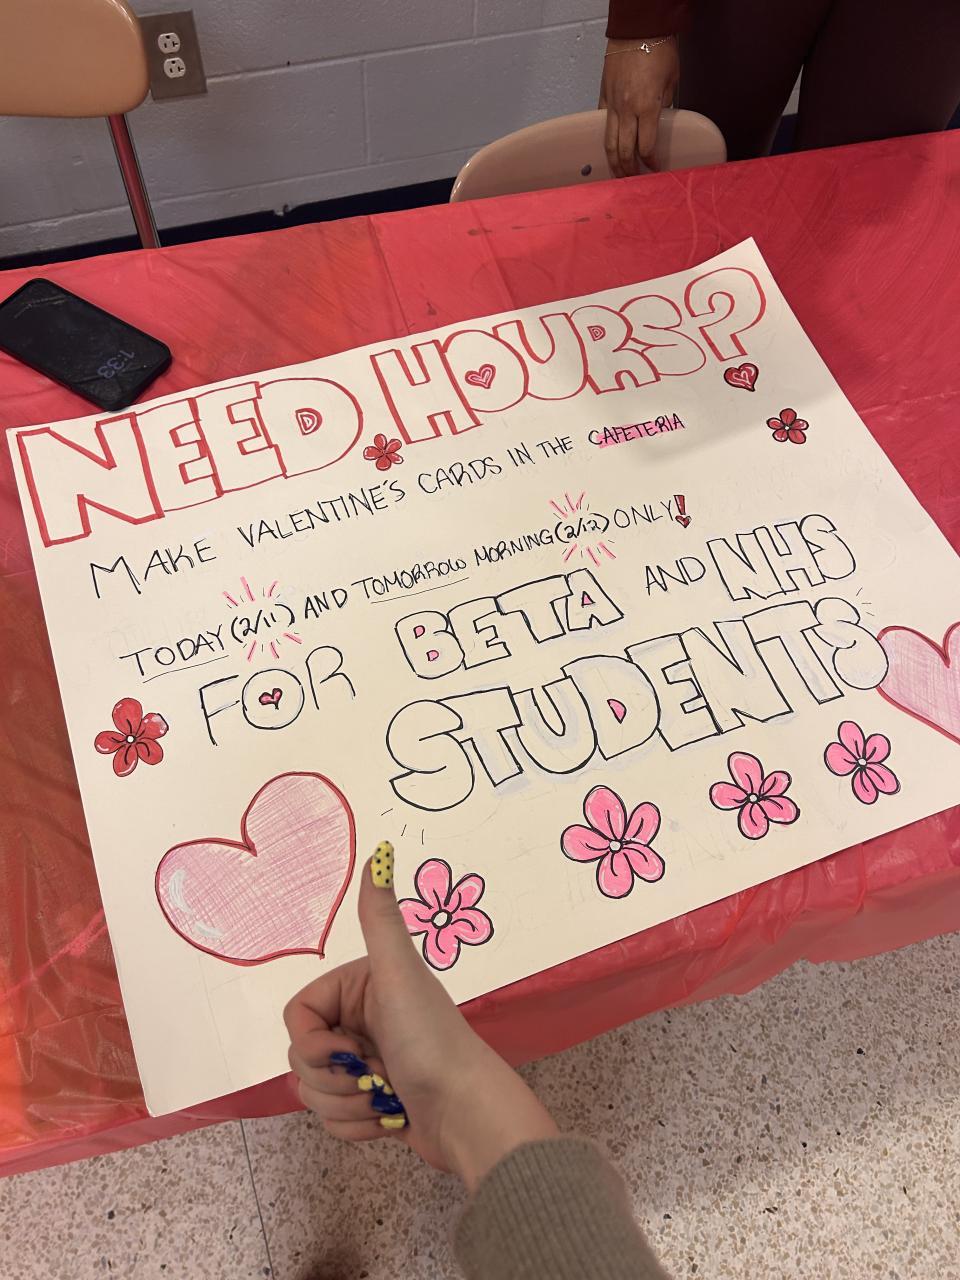 NEED HOURS?
MAKE VALENTINE'S CARDS IN THE CAFETERIA
TODAY (2/11) AND TOMORROW MORNING (2/12) ONLY!
FOR BETA AND NHS
STUDENTS
1:33